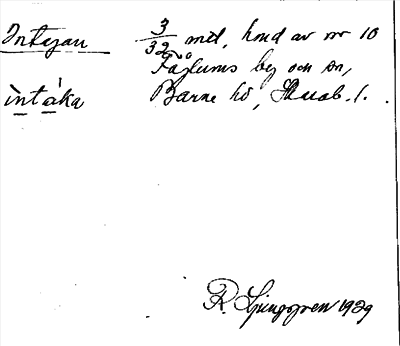 Intagan 3/32 mtl, hmd av nr 10
Fåglums by och sn,
ìntáka Barne hd, Skarab. l.
R. Ljunggren 1929